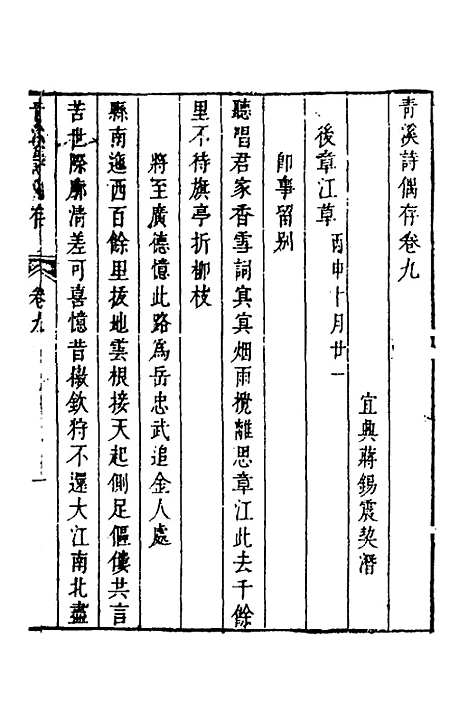 青溪詩偶存卷九
宜興蔣錫震契潛
後章江草 丙申十月廿一
卽事留別
聽唱君家香雪詞寘寘烟雨攪離思章江此去千餘
里不待旗亭折柳枝
將至廣德憶此路爲岳忠武追金人處
縣南迤西百餘里拔地雲根接天起側足傴僂共言
苦世際廓清差可喜憶昔徽欽狩不還大江南北盡
青溪詩偶存
卷九
一